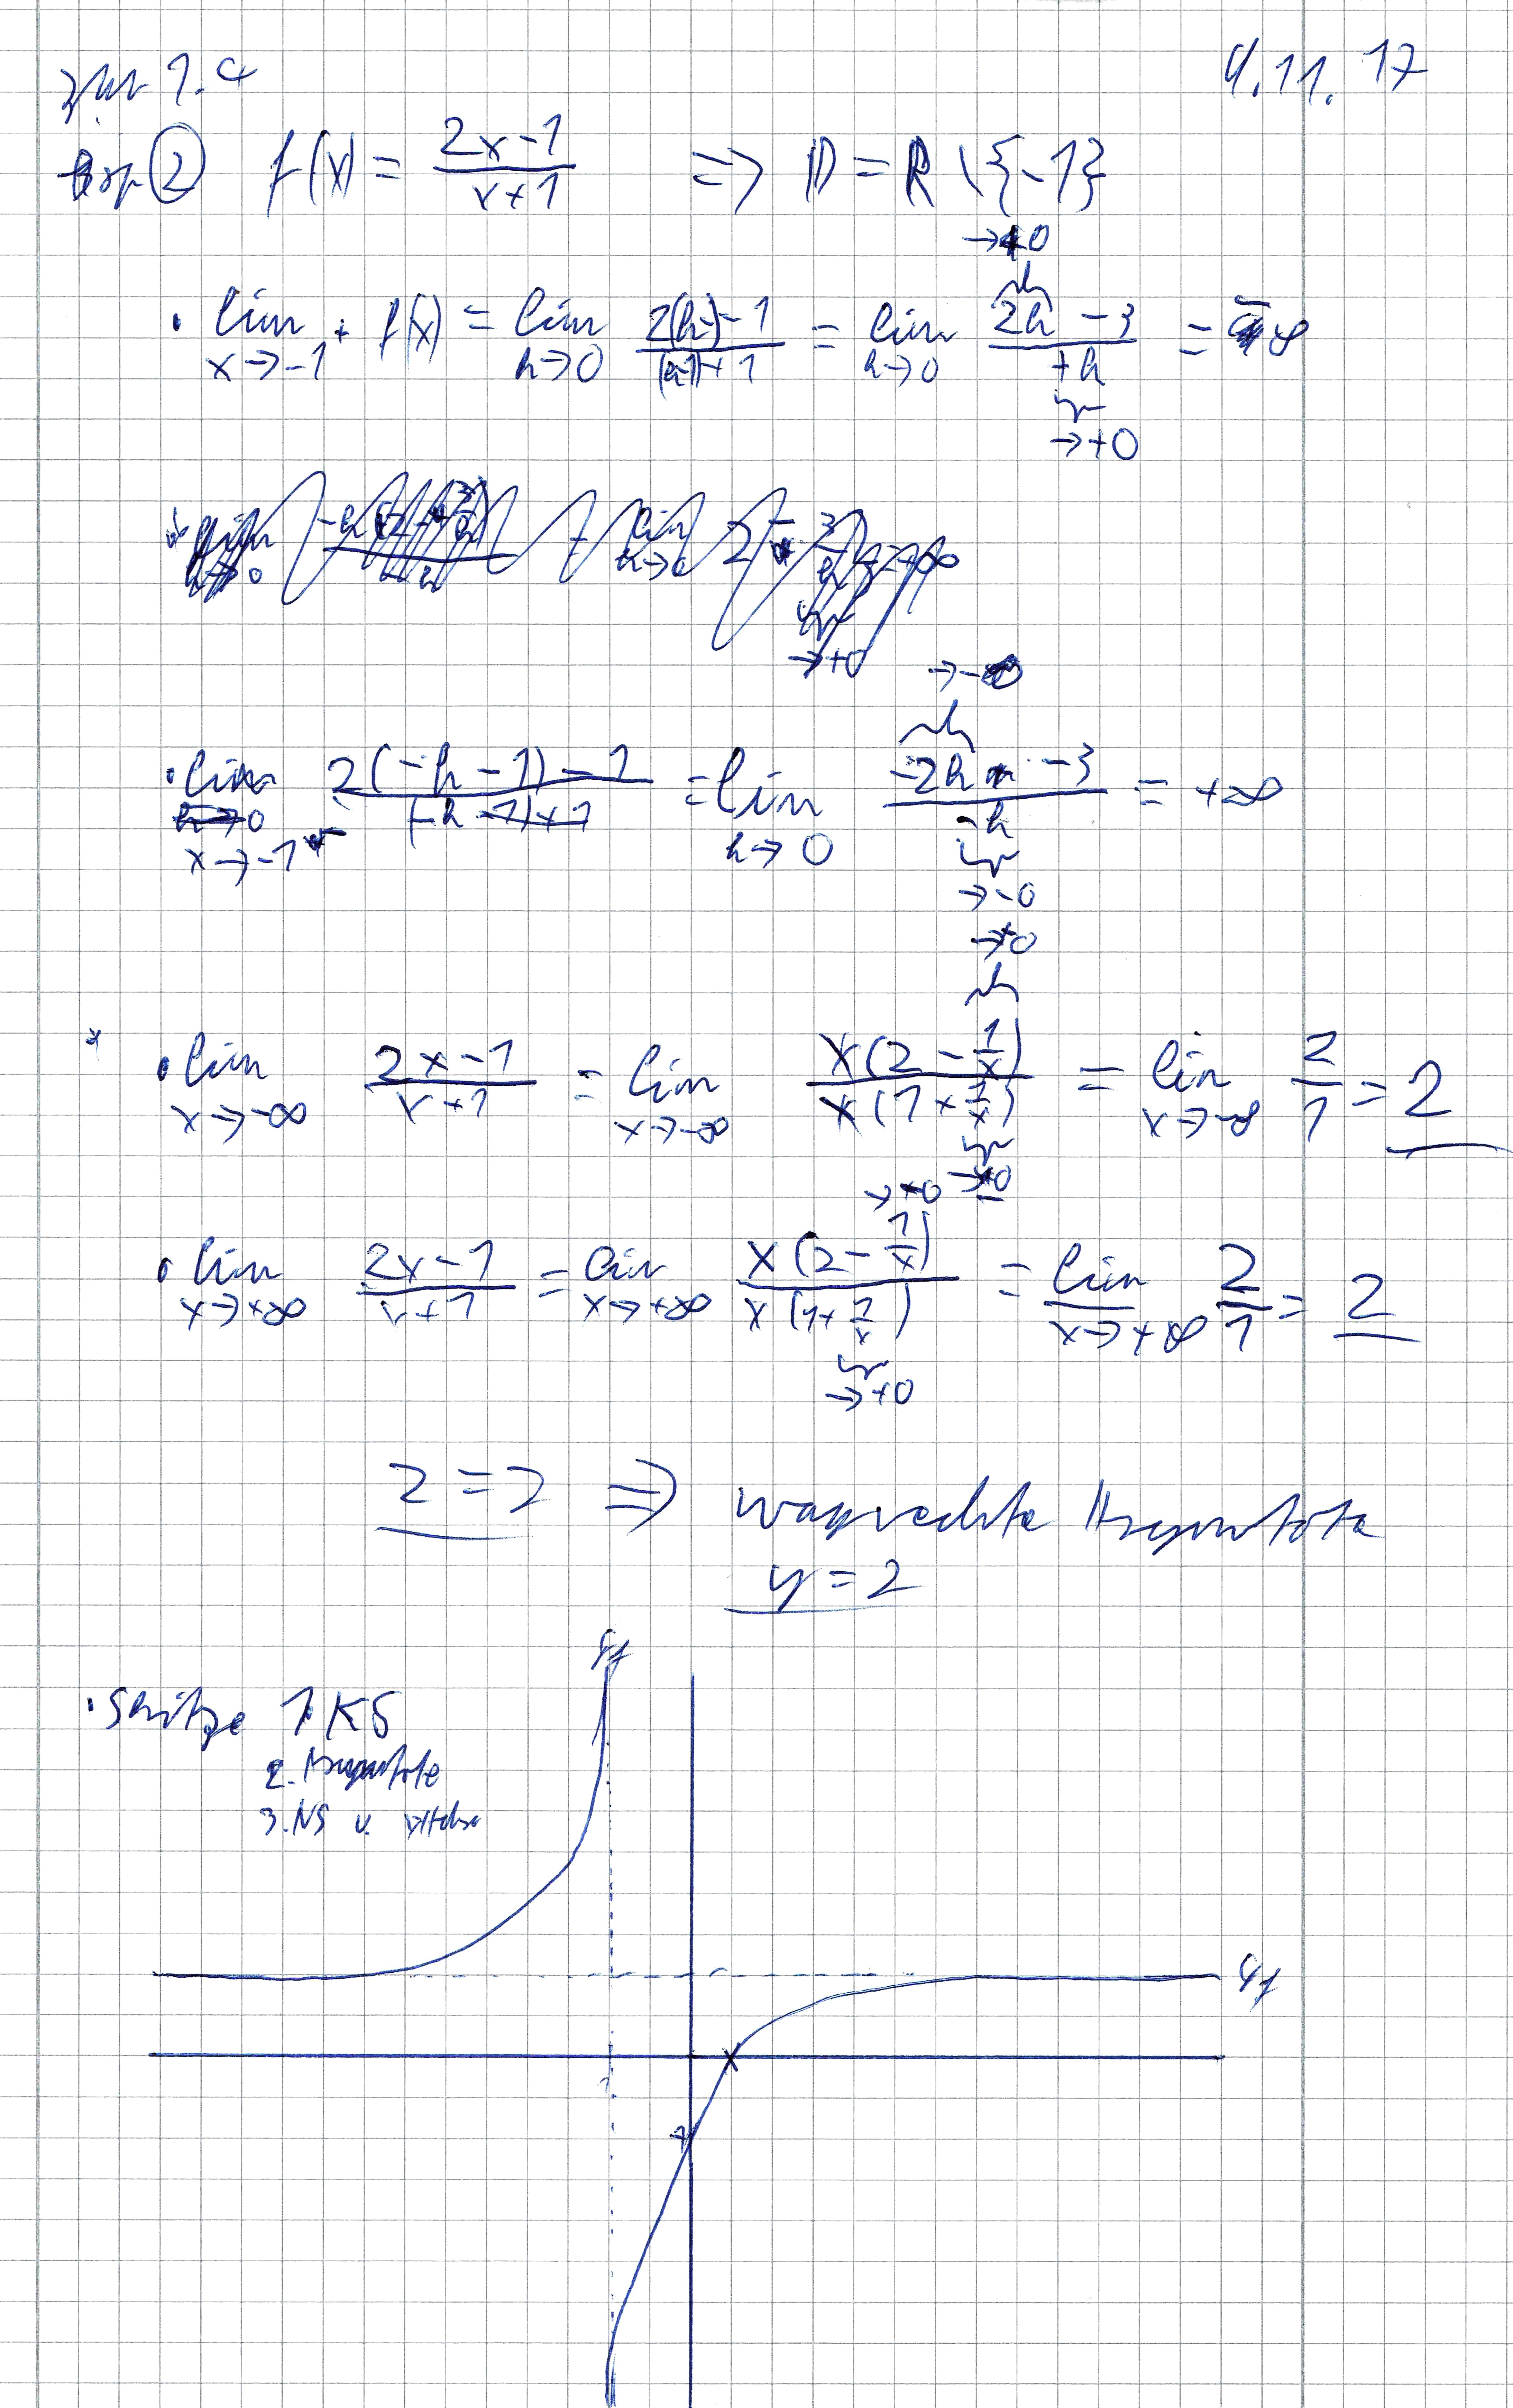 zur 1.4
4.11.17
Bsp ② f(x) = (2x-1)/(x+1) => D = R \ {-1}
→+0
• lim x→-1⁺ f(x) = lim h→0 (2(h-1)-1)/((h-1)+1) = lim h→0 (2h -3)/(+h) = -∞
→+0
→+0
→-0
• lim x→-1⁻ (2(-h-1)-1)/((-h-1)+1) = lim h→0 (-2h -3)/(-h) = +∞
→-0
→+0
• lim x→-∞ (2x-1)/(x+1) = lim x→-∞ (x(2 - 1/x))/(x(1 + 1/x)) = lim x→-∞ 2/1 = 2
→+0
• lim x→+∞ (2x-1)/(x+1) = lim x→+∞ (x(2 - 1/x))/(x(1 + 1/x)) = lim x→+∞ 2/1 = 2
→+0
2 = 2 => waagrechte Asymptote
y = 2
Gf
• Skitze 1 KS
2. Asymptote
3. NS u.
Gf